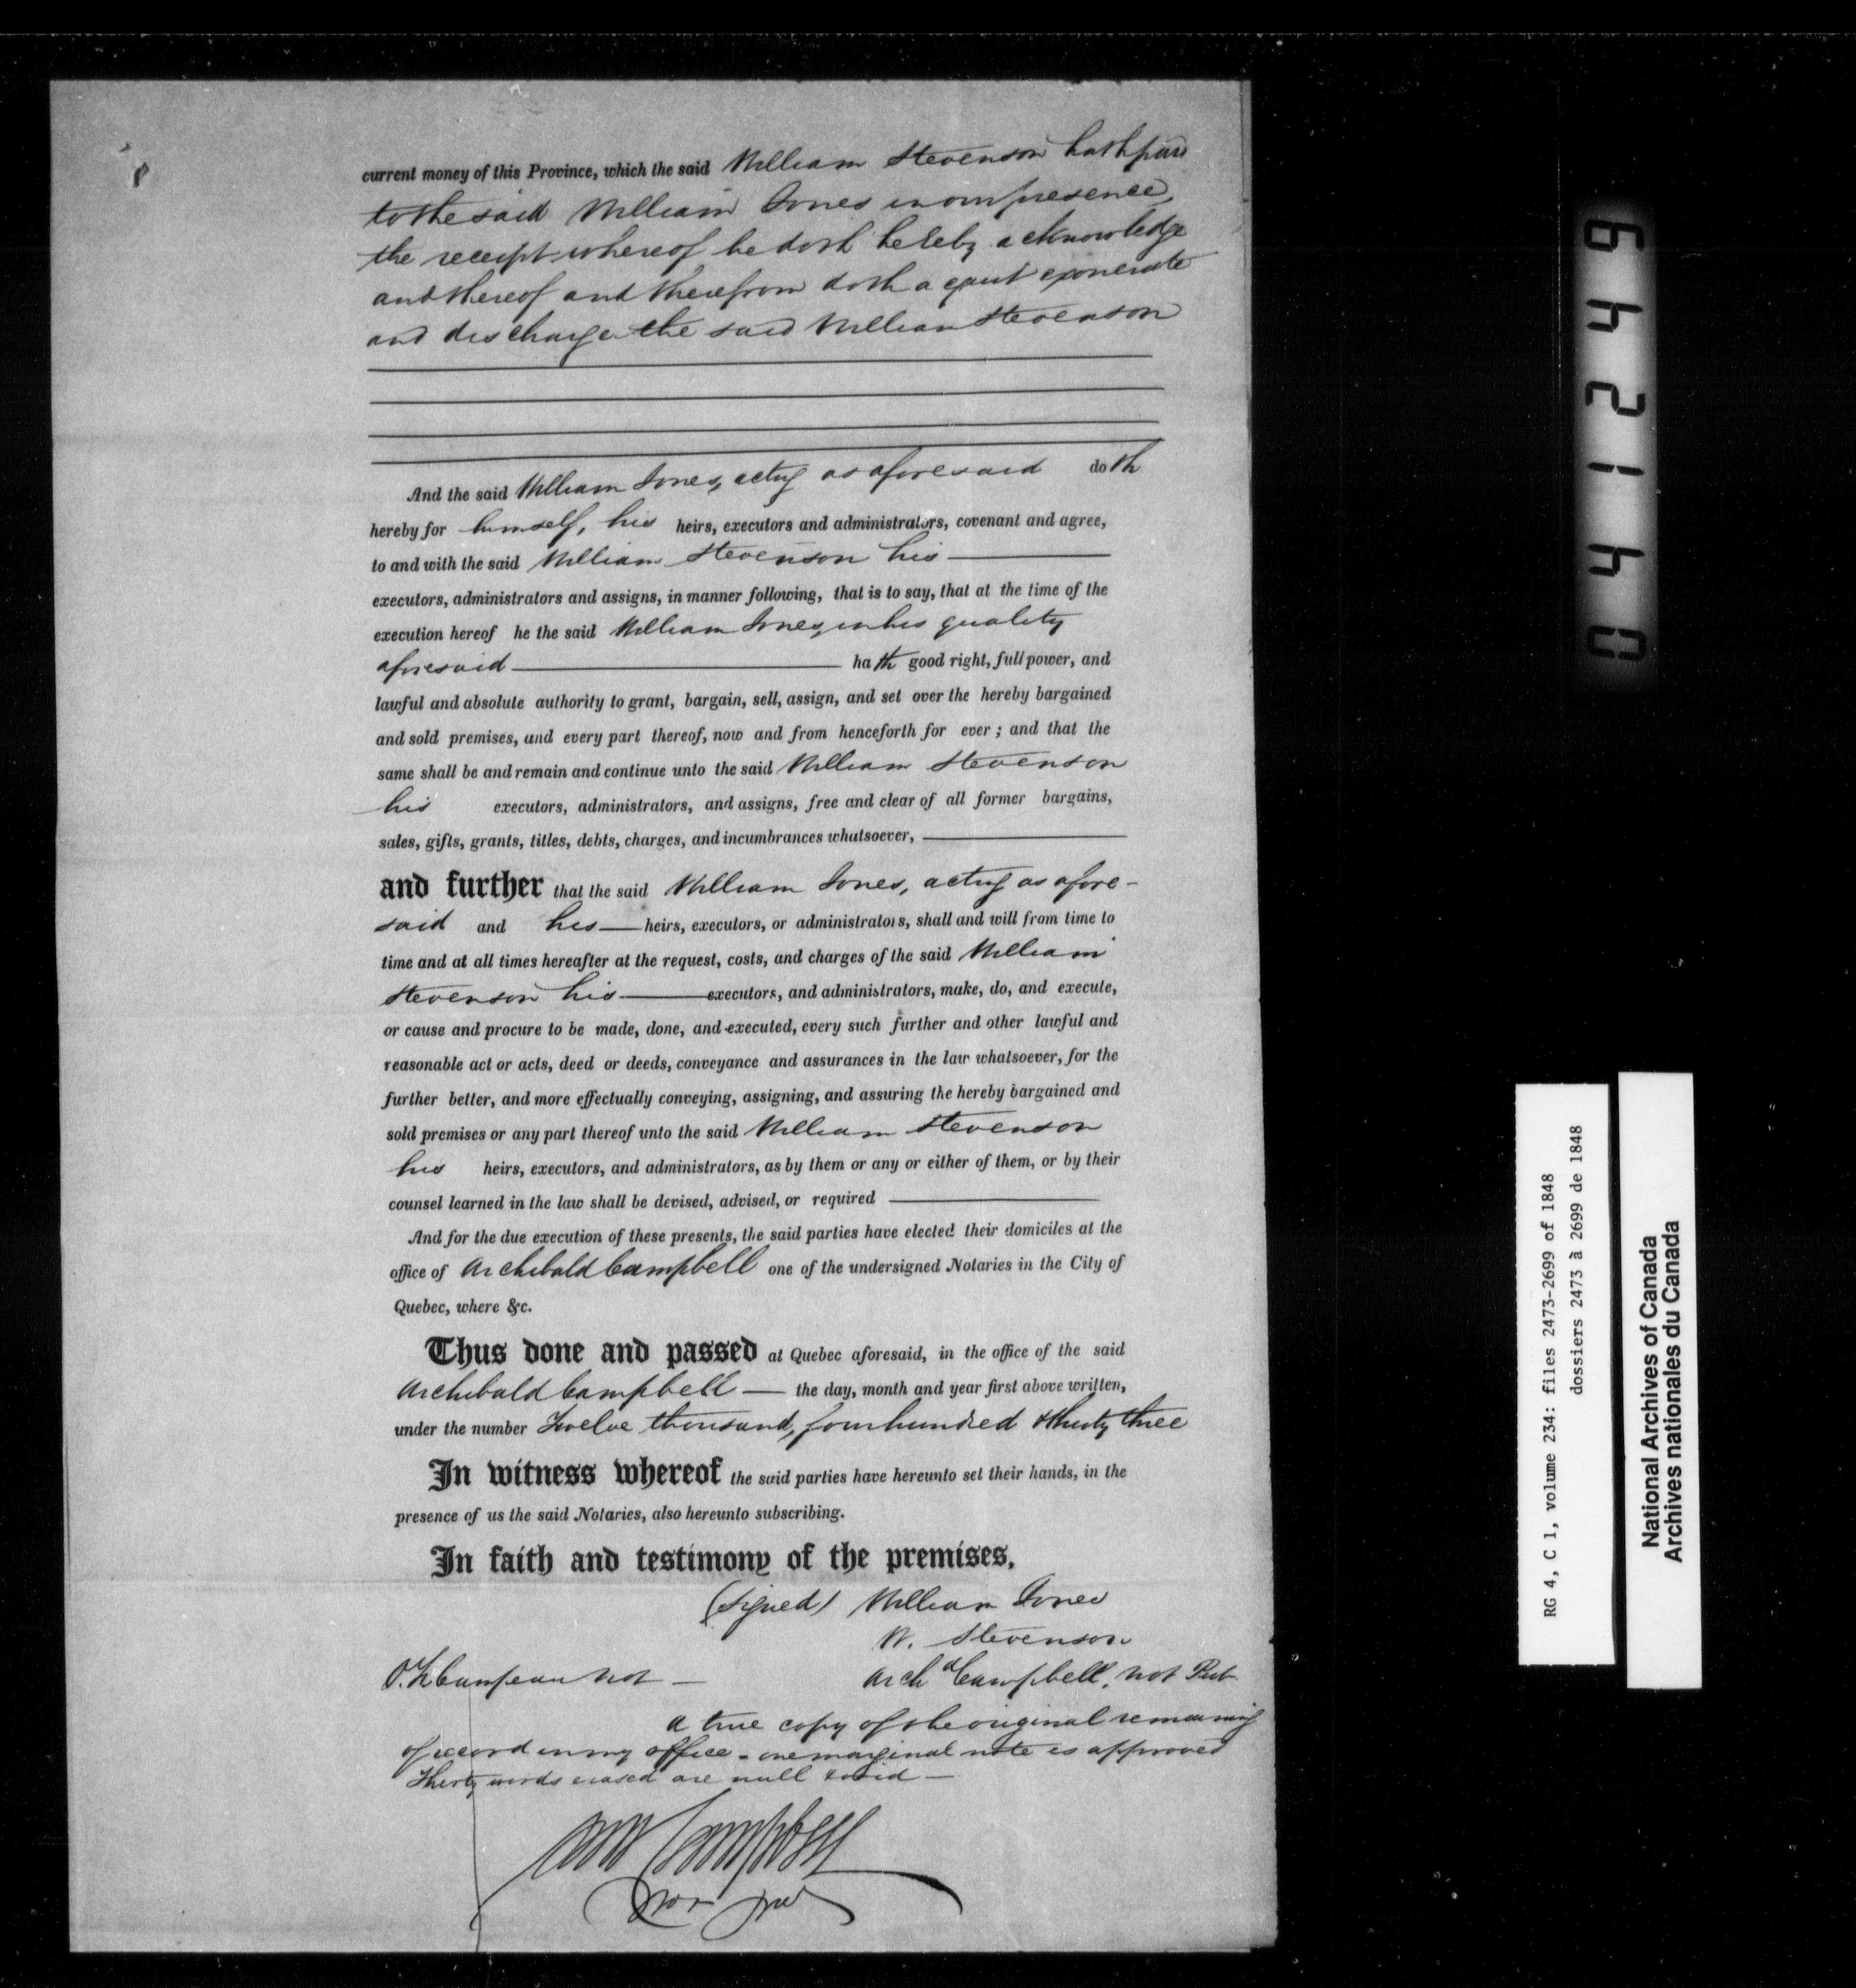 current money of this Province, which the said William Stevenson hath paid
to the said William Jones in our presence,
the receipt whereof he doth hereby acknowledge
and thereof and therefrom doth acquit exonerate
and discharge the said William Stevenson
And the said William Jones, acting as aforesaid doth
hereby for himself, his heirs, executors and administrators, covenant and agree,
to and with the said William Stevenson his
executors, administrators and assigns, in manner following, that is to say, that at the time of the
execution hereof he the said William Jones, in his quality
aforesaid hath good right, full power, and
lawful and absolute authority to grant, bargain, sell, assign, and set over the hereby bargained
and sold premises, and every part thereof, now and from henceforth for ever; and that the
same shall be and remain and continue unto the said William Stevenson
his executors, administrators, and assigns, free and clear of all former bargains,
sales, gifts, grants, titles, debts, charges, and incumbrances whatsoever,
and further that the said William Jones, acting as afore-
said and his heirs, executors, or administrators, shall and will from time to
time and at all times hereafter at the request, costs, and charges of the said William
Stevenson his executors, and administrators, make, do, and execute,
or cause and procure to be made, done, and executed, every such further and other lawful and
reasonable act or acts, deed or deeds, conveyance and assurances in the law whatsoever, for the
further better, and more effectually conveying, assigning, and assuring the hereby bargained and
sold premises or any part thereof unto the said William Stevenson
his heirs, executors, and administrators, as by them or any or either of them, or by their
counsel learned in the law shall be devised, advised, or required
And for the due execution of these presents, the said parties have elected their domiciles at the
office of Archibald Campbell one of the undersigned Notaries in the City of
Quebec, where &c.
Thus done and passed at Quebec aforesaid, in the office of the said
Archibald Campbell — the day, month and year first above written,
under the number Twelve thousand, four hundred & thirty three
In witness whereof the said parties have hereunto set their hands, in the
presence of us the said Notaries, also hereunto subscribing.
In faith and testimony of the premises,
(signed) William Jones
W. Stevenson
Campeau Not — Archd Campbell, Not Pub
A true copy of the original remaining
of record in my office - one marginal note is approved
Thirty words erased are null & void —
Arch Campbell
Not Pub
0 4 1 2 4 9
RG 4, C 1, volume 234: files 2473-2699 of 1848
dossiers 2473 à 2699 de 1848
National Archives of Canada
Archives nationales du Canada